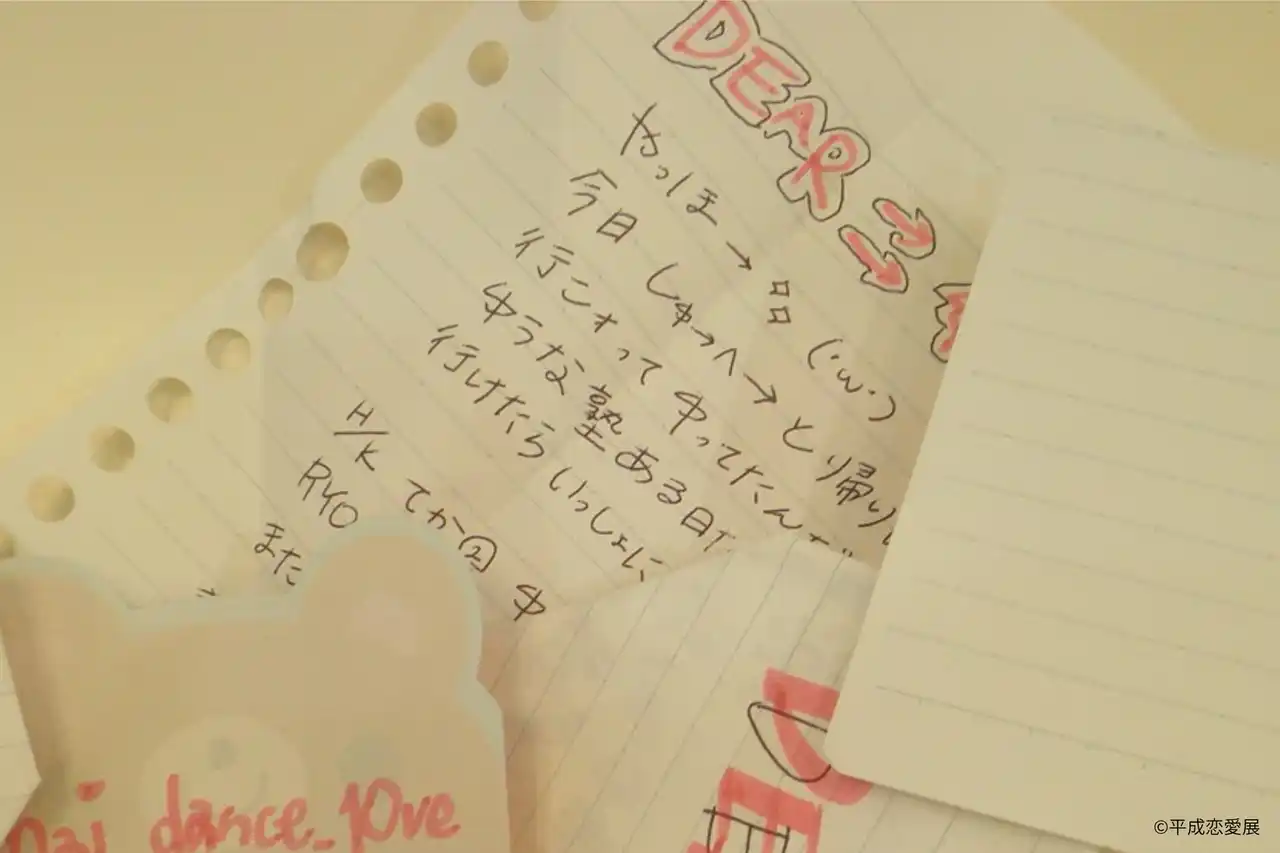 DEAR
やっほ→品(・ω・)
今日しゅっへ→と帰り
行こォってゆってたんだ
ゆうな塾ある日
行けたらいっしょに
H/K てか②ゆ
RYO
また
dance_10ve
DE
©平成恋愛展